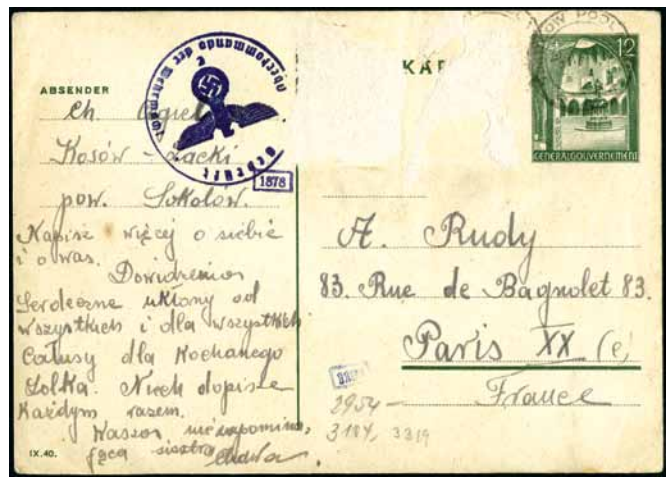 ABSENDER
Ch.
Kosów - Lacki
pow. Sokolow.
Napisz więcej o siebie
i o was.
Dowidzenia
Serdeczne ukłony od
wszystkich i dla wszystkich
Całusy dla Kochanego
Lolka. Niech dopisze
Każdym razem.
Wasza
siostra Chawa
IX.40.
Oberkommando der Wehrmacht
Geprüft
e
1878
KAR
OW PODL
12
GENERALGOUVERNEMENT
A. Rudy
83. Rue de Bagnolet 83.
Paris XX (e)
France
2954 -
3184, 3319